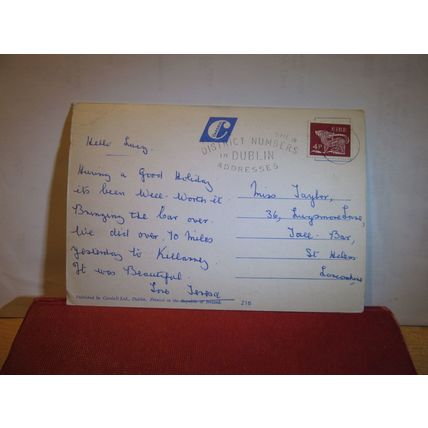 SHEW
DISTRICT NUMBERS
IN DUBLIN
ADDRESSES
EIRE
4P
Hello Lucy.
Having a Good Holiday
its been Well-Worth it
Bringing the Car over.
We did over 70 Miles
yesterday to Killarney
It was Beautiful.
Love Teresa
Miss Taylor,
36, Lugsmore Lane,
Toll-Bar,
St Helens
Lancashire
Published by Cardall Ltd., Dublin. Printed in the Republic of Ireland.
216